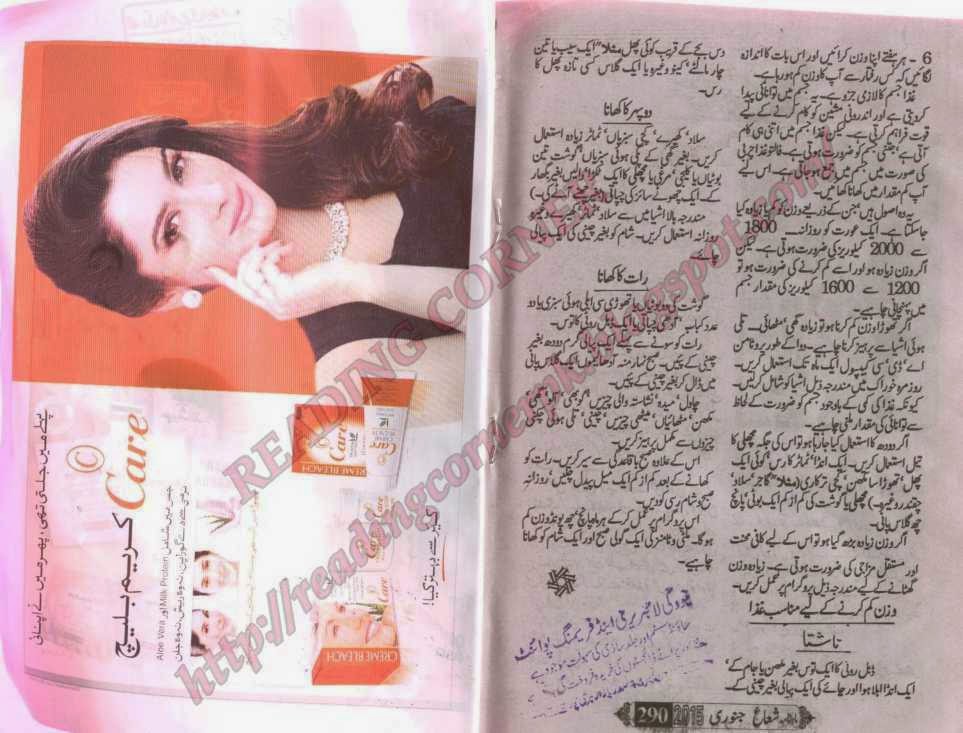 6 - ہر ہفتے اپنا وزن کرائیں اور اس بات کا اندازہ
لگائیں کہ کس رفتار سے آپ کا وزن کم ہو رہا ہے۔
غذا جسم کا لازمی جزو ہے۔ یہ جسم میں توانائی پیدا
کرتی ہے اور اندرونی مشینری کو کام کرنے کے لیے
قوت فراہم کرتی ہے۔ لیکن غذا جسم میں اتنی ہی کام
آتی ہے، جتنی جسم کو ضرورت ہوتی ہے۔ فالتو غذا چربی
کی صورت میں جسم میں جمع ہو جاتی ہے۔ اس لیے
آپ کم مقدار میں کھانا کھائیں۔
یہ وہ اصول ہیں جن کے ذریعے وزن کو کم یا زیادہ کیا
جا سکتا ہے۔ ایک عورت کو روزانہ 1800
سے 2000 کیلوریز کی ضرورت ہوتی ہے۔ لیکن
اگر وزن زیادہ ہو اور اسے کم کرنے کی ضرورت ہو تو
1200 سے 1600 کیلوریز کی مقدار جسم
میں پہنچانی چاہیے۔
اگر تھوڑا وزن کم کرنا ہو تو زیادہ گھی، مٹھائی، تلی
ہوئی اشیا سے پرہیز کرنا چاہیے۔ دوا کے طور پر وٹامن
اے، ڈی، سی کیپسول ایک ماہ تک استعمال کریں۔
روزمرہ خوراک میں مندرجہ ذیل اشیا کو شامل کریں۔
کیونکہ غذا کی کمی کے باوجود جسم کو ضرورت کے لحاظ
سے توانائی کی مقدار ملنی چاہیے۔
اگر دودھ کا استعمال کیا جا رہا ہو تو اس کی جگہ مچھلی کا
تیل استعمال کریں۔ ایک انڈا، ٹماٹر کا رس، کوئی ایک
پھل، تھوڑا سا مکھن، کچی ترکاری (مثلاً گاجر، سلاد،
چقندر وغیرہ) مچھلی یا گوشت کی کم از کم ایک بوٹی، پانچ
چھ گلاس پانی۔
اگر وزن زیادہ بڑھ گیا ہو تو اس کے لیے کافی محنت
اور مستقل مزاجی کی ضرورت ہوتی ہے۔ زیادہ وزن
گھٹانے کے لیے مندرجہ ذیل پروگرام پر عمل کریں۔
وزن کم کرنے کے لیے مناسب غذا
ناشتا
ڈبل روٹی کا ایک توس بغیر مکھن یا جام کے،
ایک انڈا ابلا ہوا اور چائے کی ایک پیالی بغیر چینی کے۔
دس بجے کے قریب کوئی پھل مثلاً ایک سیب یا تین
چار مالٹے، کینو وغیرہ یا ایک گلاس کسی تازہ پھل کا
رس۔
دوپہر کا کھانا
سلاد، کھیرے، کچی سبزیاں، ٹماٹر زیادہ استعمال
کریں۔ بغیر گھی کے پکی ہوئی سبزیاں، گوشت تین
بوٹیاں یا کلیجی، مرغی یا مچھلی کا ایک ٹکڑا، دالیں بغیر بگھار
کے۔ ایک چھوٹے سائز کی چپاتی (بغیر چھنے آٹے کی۔)
مندرجہ بالا اشیا میں سے سلاد، ٹماٹر، کھیرے وغیرہ
روزانہ استعمال کریں۔ شام کو بغیر چینی کی ایک پیالی
چائے
رات کا کھانا
گوشت کی دو بوٹیاں یا تھوڑی سی ابلی ہوئی سبزی یا دو
عدد کباب، آدھی چپاتی یا ایک ڈبل روٹی کا توس۔
رات کو سونے سے پہلے ایک پیالی گرم دودھ بغیر
چینی کے پئیں۔ صبح نہار منہ آدھا لیموں ایک گلاس پانی
میں ڈال کر بغیر چینی کے پئیں۔
چاول، میدہ، نشاستہ والی چیزیں، گوبھی، آلو، گھی،
مکھن، مٹھائیاں، میٹھی چیزیں، چینی، تلی ہوئی چکنی
چیزوں سے مکمل پرہیز کریں۔
اس کے علاوہ صبح باقاعدگی سے سیر کریں۔ رات کو
کھانے کے بعد کم از کم ایک میل پیدل چلیں، روزانہ
صبح و شام رسی کودیں۔
اس پروگرام پر عمل کر کے ہر ماہ پانچ، چھ پونڈ وزن کم
ہوگا۔ ملٹی وٹامنز کی ایک گولی صبح اور ایک شام کو کھانا
چاہیے۔
لائبریری اینڈ فریمنگ پوائنٹ
ماہنامہ شعاع جنوری 2015 290
پہلے میں جلتی تھی، پھر میں نے اپنائی
©
Care
کریم بلیچ
جس میں شامل Milk Protein اور Aloe Vera
کیئر سے بہتر کیا!
Care
CREME BLEACH
CREME BLEACH
READING CORNER
http://readingcornerpk.blogspot.com/